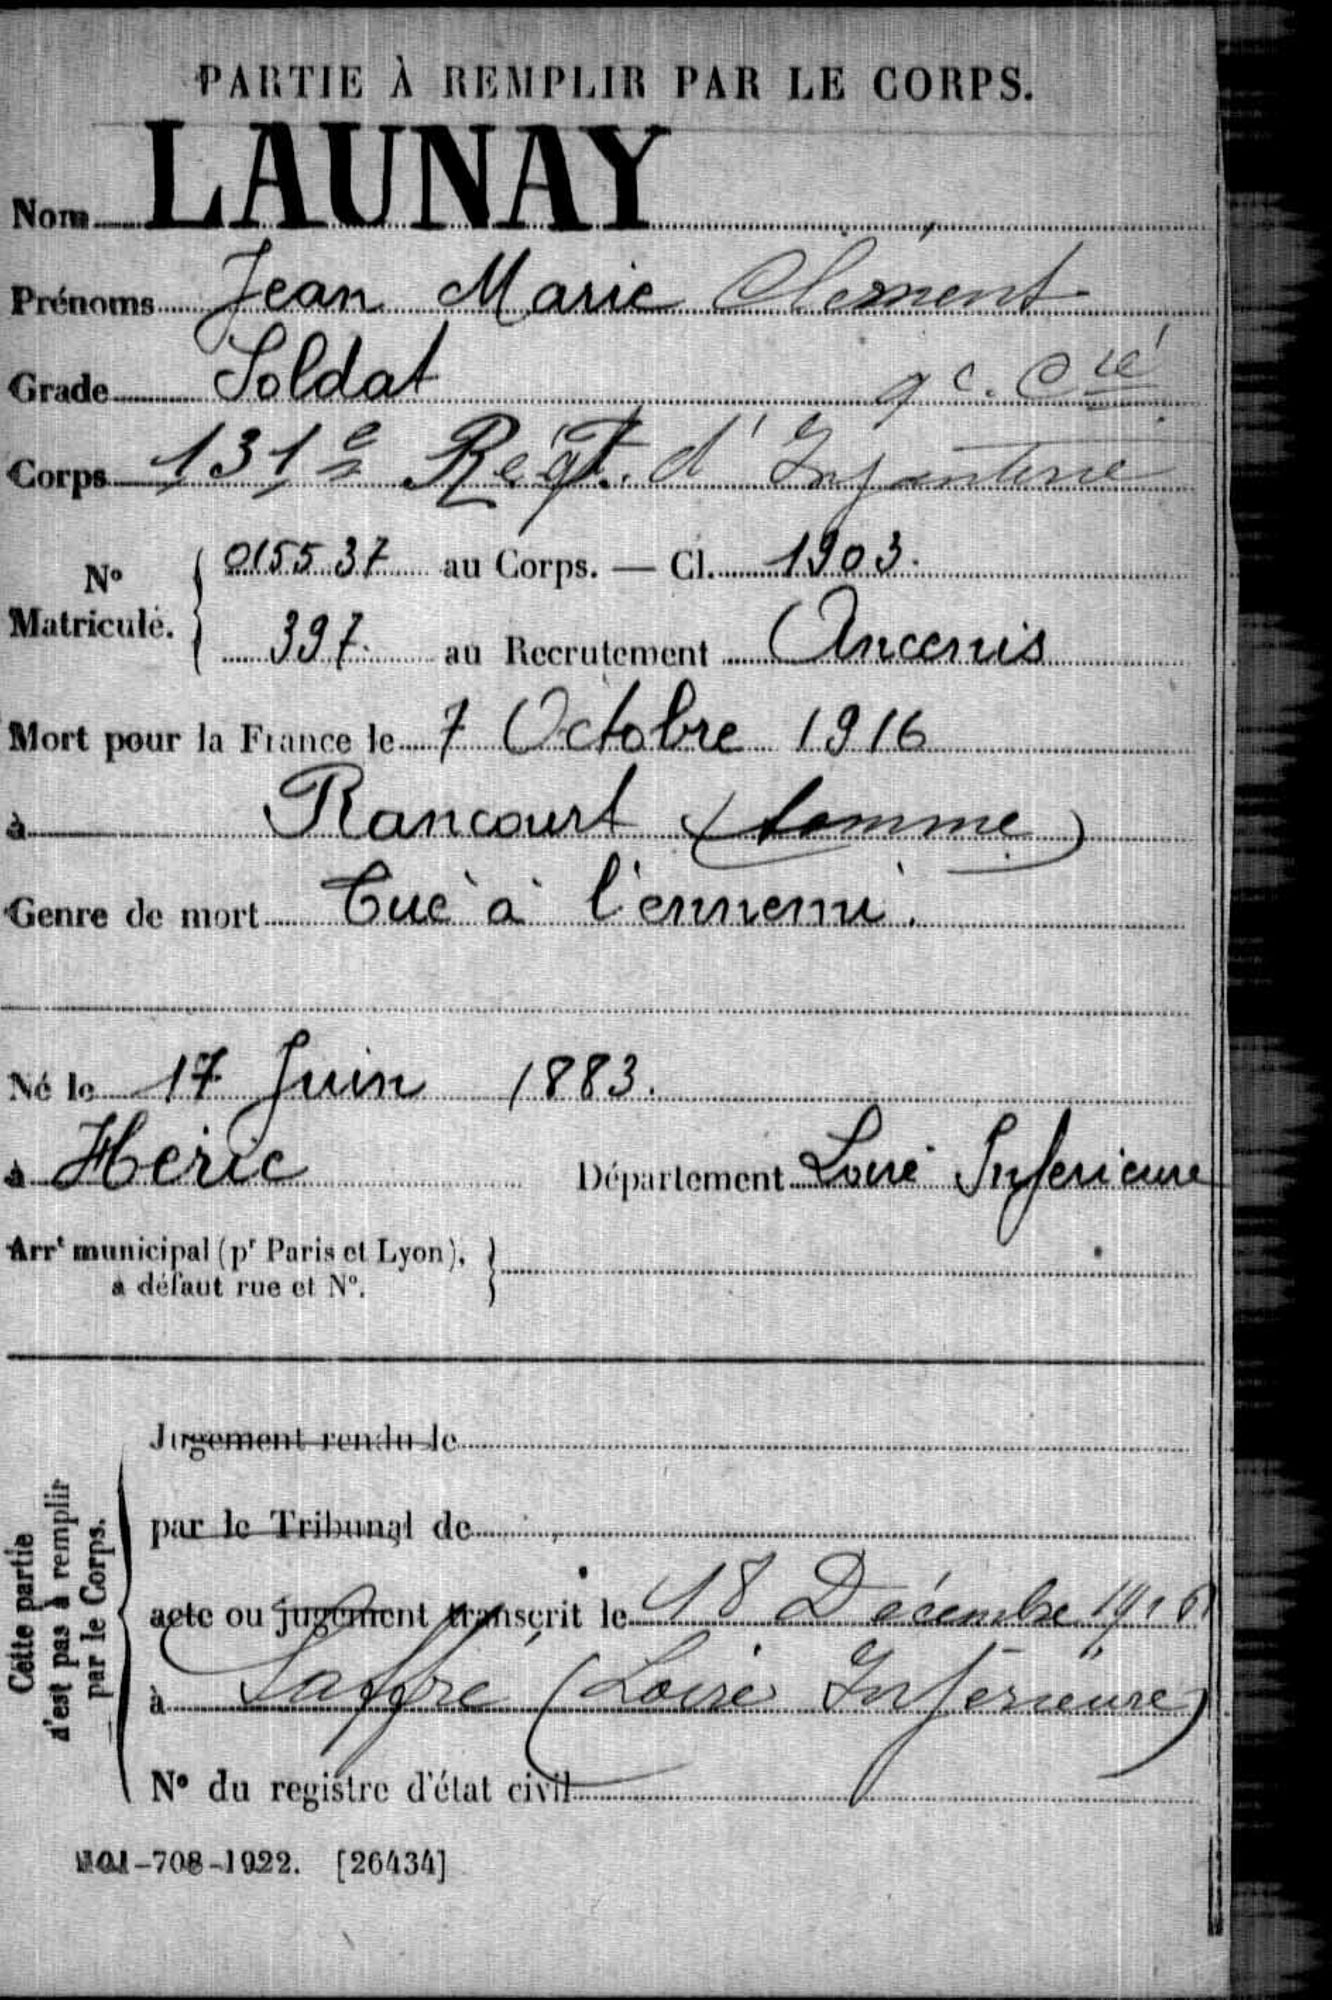 PARTIE À REMPLIR PAR LE CORPS.
Nom LAUNAY
Prénoms Jean Marie Clément
Grade Soldat 9e. Cie
Corps 131e Régt. d'Infanterie
No Matricule. { 015537 au Corps. — Cl. 1903.
397. au Recrutement Ancenis
Mort pour la France le 7 Octobre 1916
à Rancourt (Somme)
Genre de mort Tué à l'ennemi.
Né le 17 Juin 1883.
à Héric Département Loire Inférieure
Arrt municipal (pr Paris et Lyon), }
à défaut rue et No.
Cette partie
n'est pas à remplir
par le Corps.
Jugement rendu le
par le Tribunal de
acte ou jugement transcrit le 18 Décembre 1916
à Saffré (Loire Inférieure)
No du registre d'état civil
-708-1922. [26434]